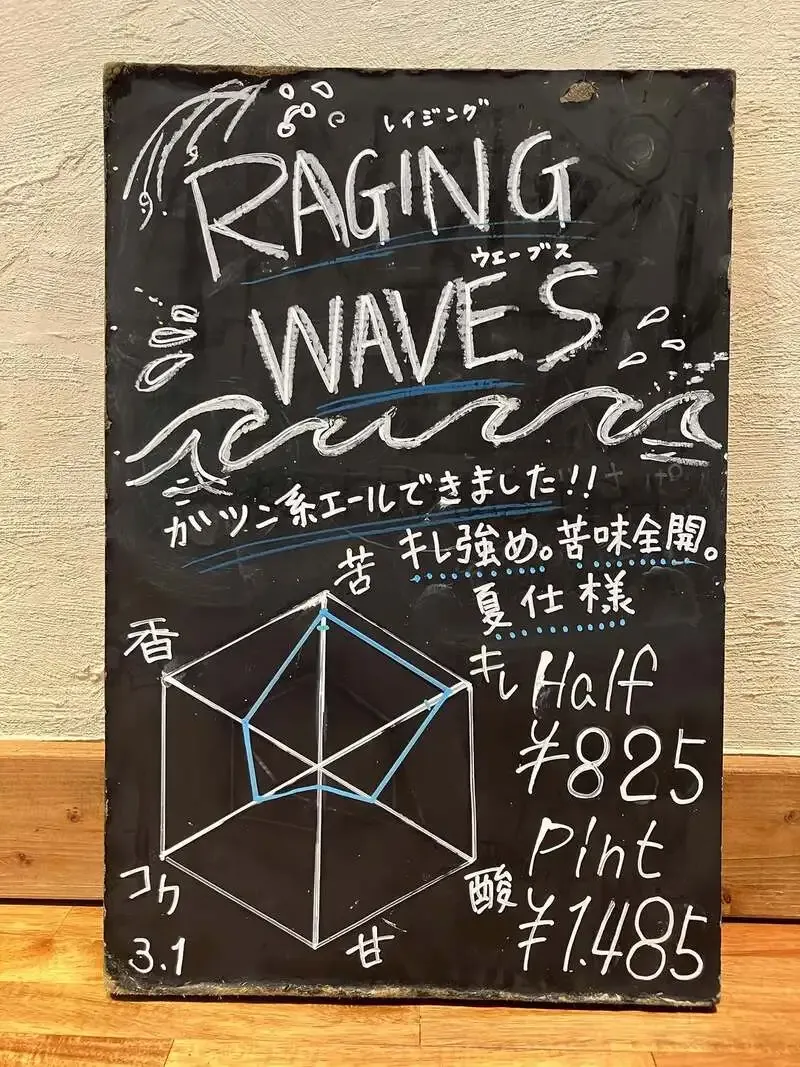 レイジング
RAGING
ウェーブス
WAVES
ガツン系エールできました!!
キレ強め。苦味全開。
夏仕様
苦
香
キレ
Half
¥825
Pint
¥1.485
コク
酸
甘
3.1